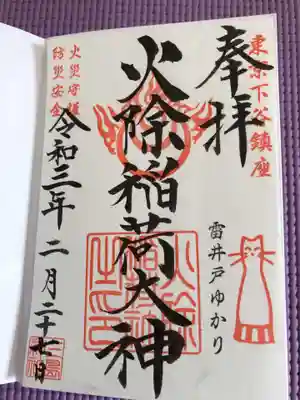 東京下谷鎮座
奉拝
雷井戸ゆかり
火除稲荷大神
火災守護
防災安全
令和三年 二月二十七日